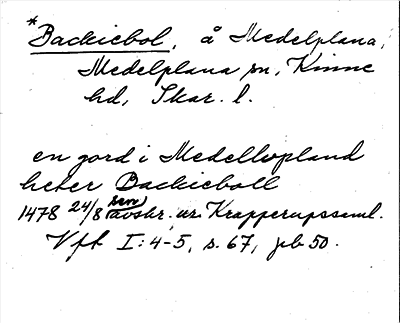 *
Backiebol, å Medelplana,
Medelplana sn, Kinne
hd, Skar. l.
en gord i Medellvpland
heter Backieboll
sen
1478 24/8 avskr. ur Krapperupssaml.
Vft I:4-5, s. 67, jb 50.